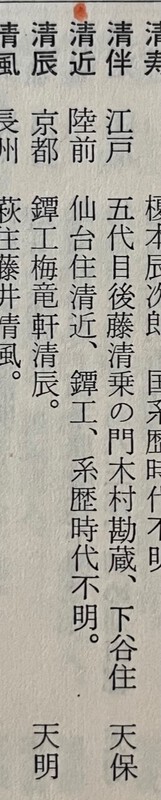 清寿 榎本辰次郎 国系歴時代不明
清伴 江戸 五代目後藤清乗の門木村勘蔵、下谷住 天保
清近 陸前 仙台住清近、鐔工、系歴時代不明。
清辰 京都 鐔工梅竜軒清辰。 天明
清風 長州 萩住藤井清風。